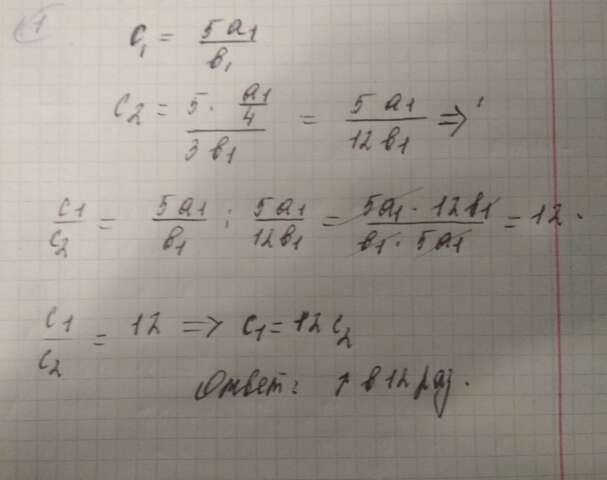 1
c₁ = 5a₁/в₁
c₂ = (5 · a₁/4)/(3в₁) = 5a₁/12в₁ ⇒
c₁/c₂ = 5a₁/в₁ : 5a₁/12в₁ = 5a₁ · 12в₁/в₁ · 5a₁ = 12.
c₁/c₂ = 12 ⇒ c₁ = 12c₂
Ответ: ↑ в 12 раз.